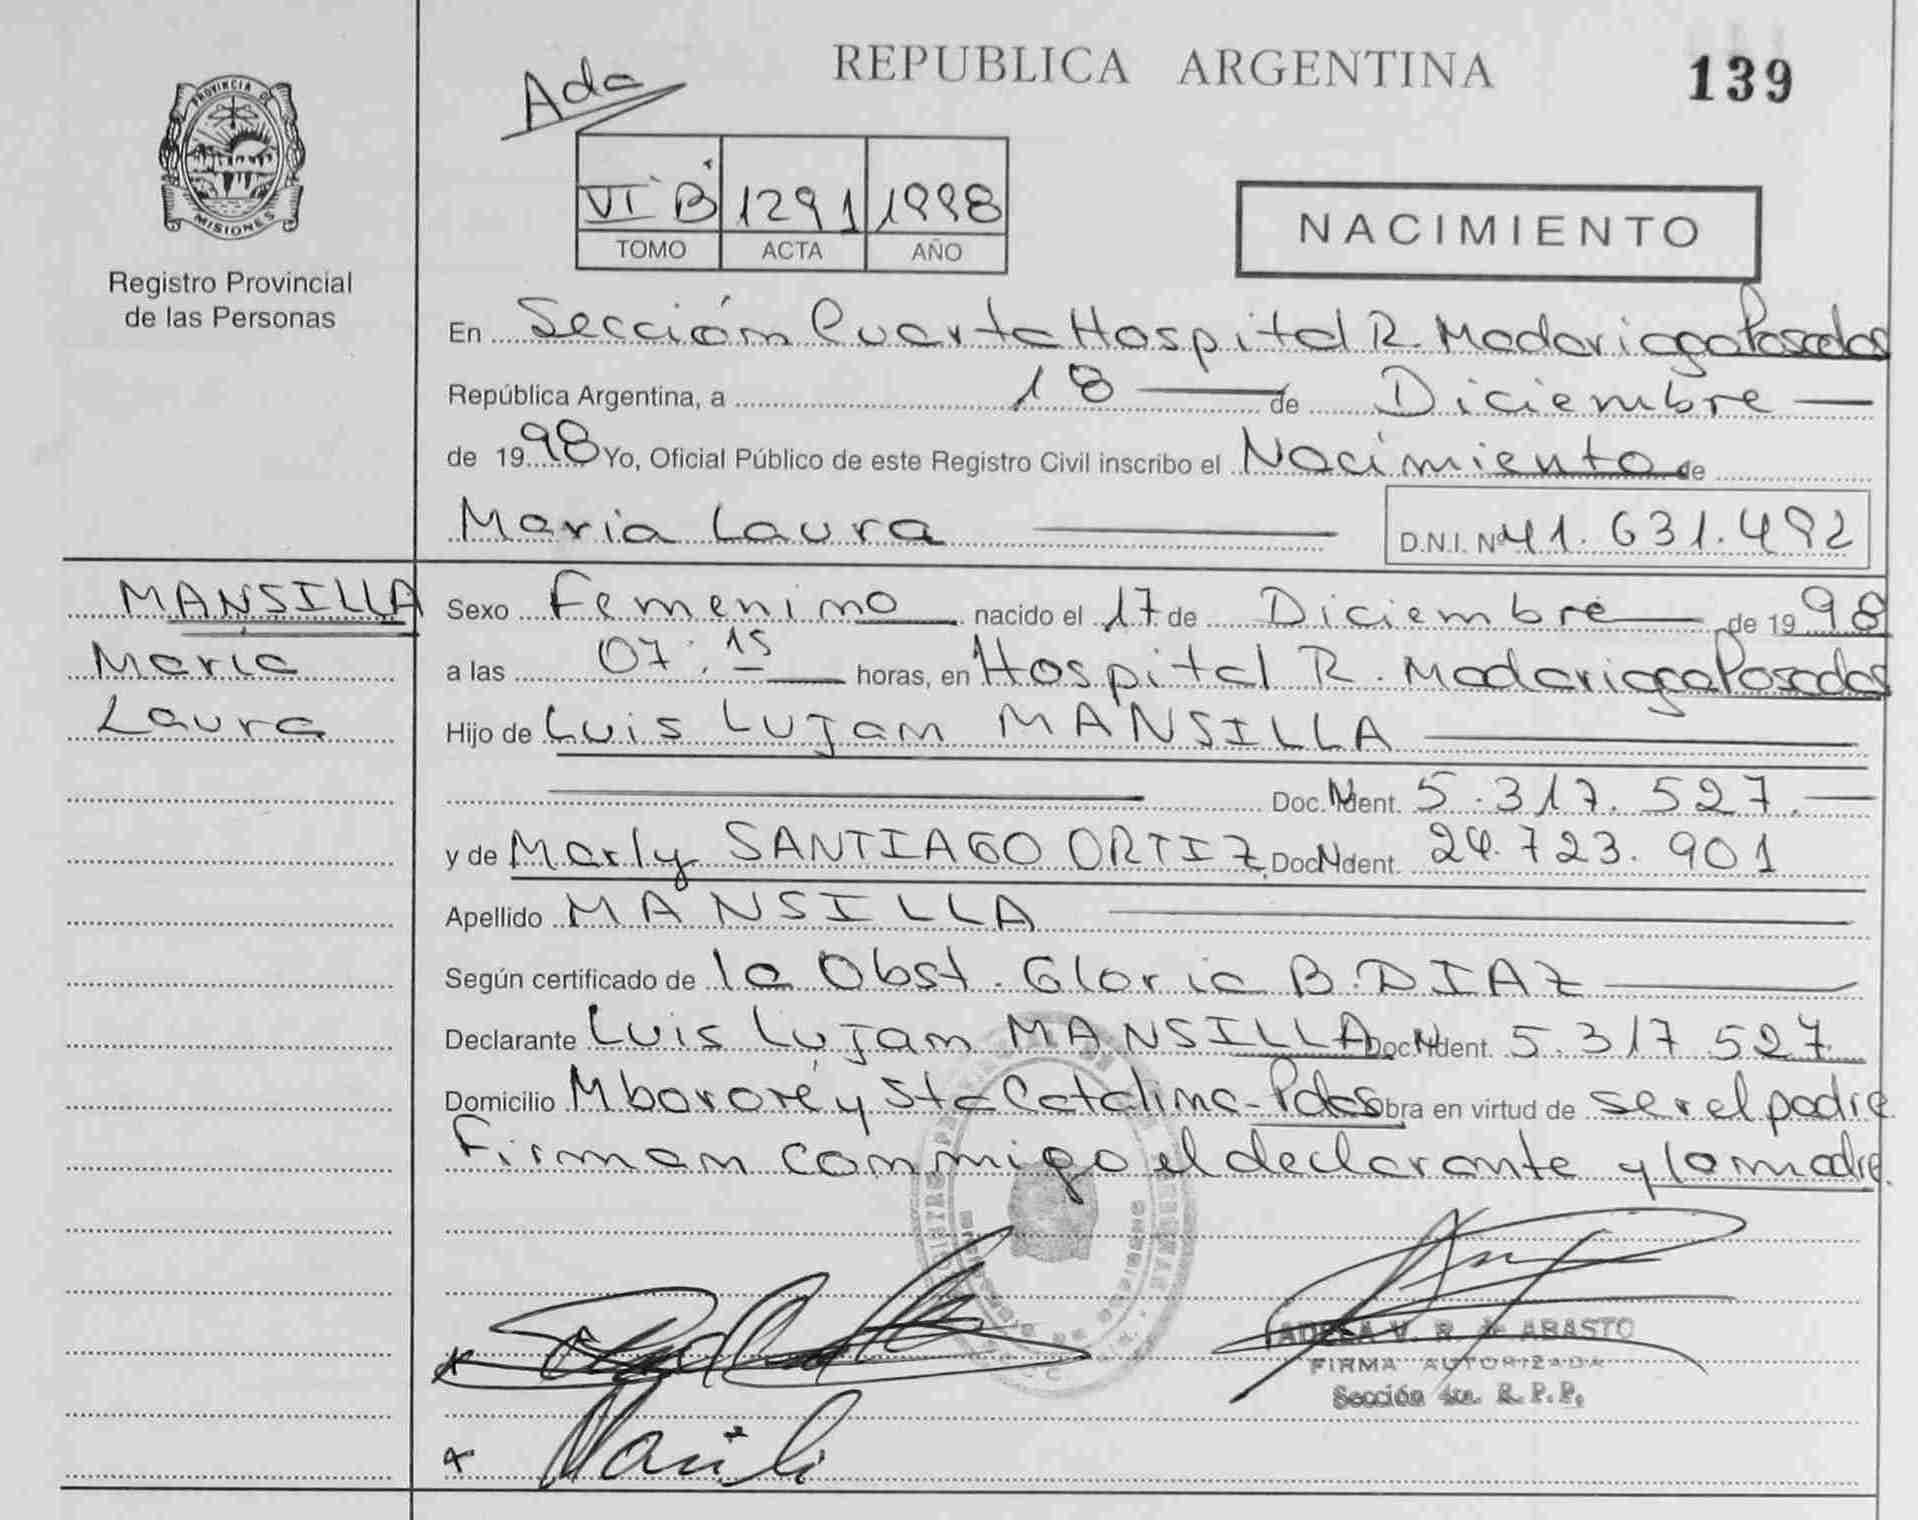 REPUBLICA ARGENTINA
139
Ada
PROVINCIA DE
MISIONES
VI "B" 1291 1998
TOMO ACTA AÑO
NACIMIENTO
Registro Provincial
de las Personas
En Sección Cuarta Hospital R. Madariaga Posadas
República Argentina, a 18 de Diciembre
de 1998 Yo, Oficial Público de este Registro Civil inscribo el Nacimiento de
Maria Laura D.N.I. Nº 41.631.492
MANSILLA
Maria
Laura
Sexo Femenino nacido el 17 de Diciembre de 1998
a las 07:15 horas, en Hospital R. Madariaga Posadas
Hijo de Luis Lujan MANSILLA
Doc. Ident. 5.317.527.
y de Marly SANTIAGO ORTIZ Doc. Ident. 24.723.901
Apellido MANSILLA
Según certificado de la Obst. Gloria B. DIAZ
Declarante Luis Lujan MANSILLA Doc. Ident. 5.317 527.
Domicilio Mbororé y Sta Catalina-Pdas Obra en virtud de ser el padre
Firman conmigo el declarante y la madre.
ADELA V. R. de ABASTO
FIRMA AUTORIZADA
Sección 4ta. R.P.P.